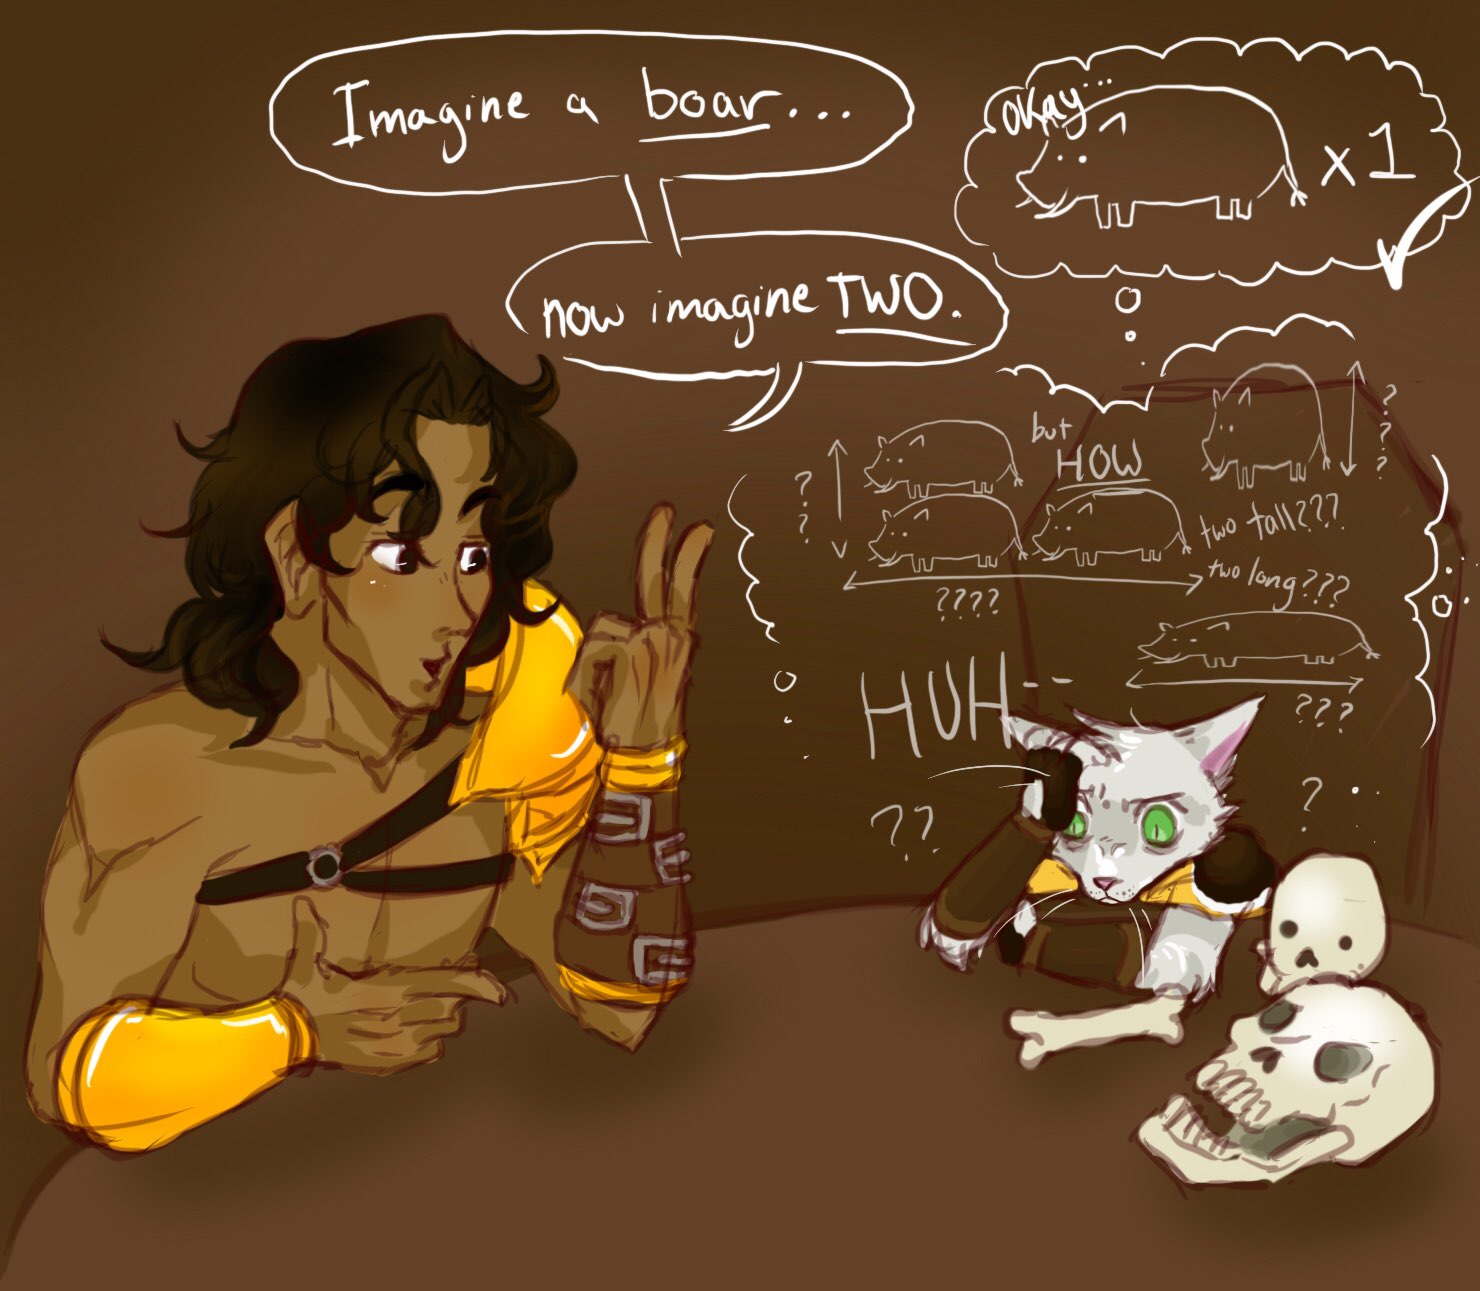 Imagine a boar...
now imagine TWO.
okay...
x1
but
HOW
?
?
????
?
?
?
two tall???
two long???
???
HUH--
??
?